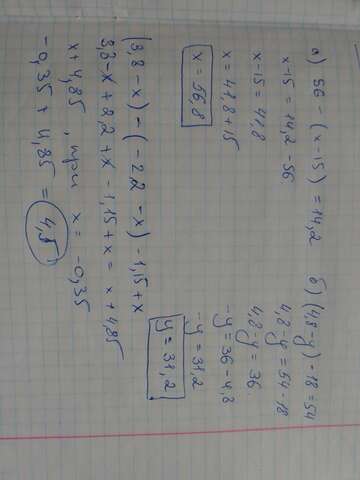 а) 56 - (x - 15) = 14,2
x - 15 = 14,2 - 56
x - 15 = 41,8
x = 41,8 + 15
x = 56,8
б) (4,8 - y) - 18 = 54
4,8 - y = 54 - 18
4,8 - y = 36
-y = 36 - 4,8
-y = 31,2
y = 31,2
(3,8 - x) - (-2,2 - x) - 1,15 + x
3,8 - x + 2,2 + x - 1,15 + x = x + 4,85
x + 4,85, при x = -0,35
-0,35 + 4,85 = 4,5